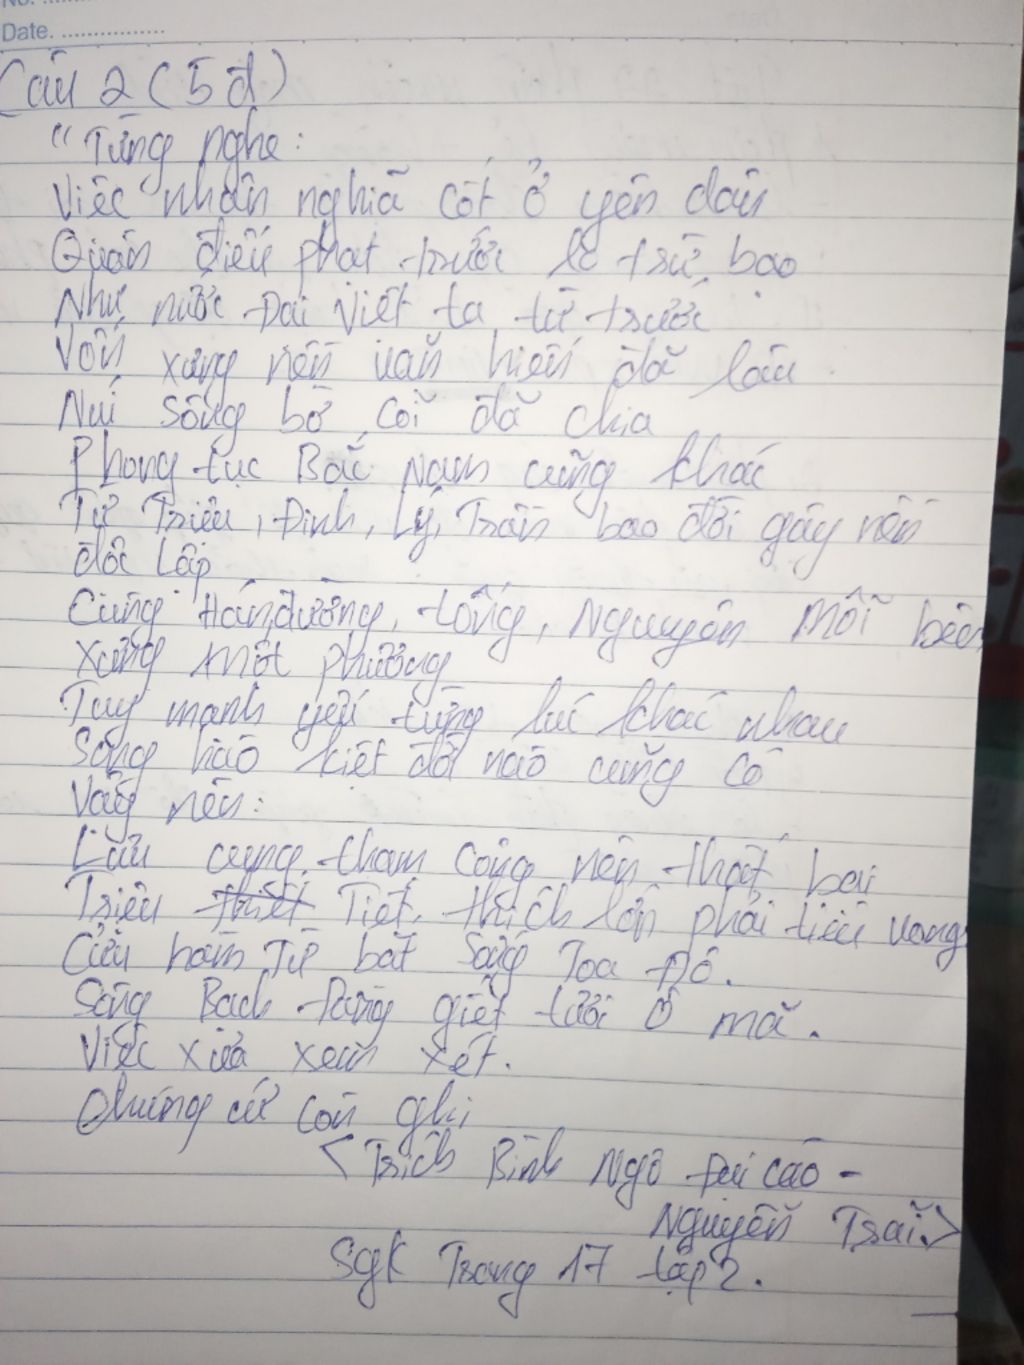 No. ............
Date. ................
Câu 2 (5 đ)
"Từng nghe:
Việc nhân nghĩa cốt ở yên dân
Quân điếu phạt trước lo trừ bạo
Như nước Đại Việt ta từ trước
Vốn xưng nền văn hiến đã lâu
Núi sông bờ cõi đã chia
Phong tục Bắc Nam cũng khác
Từ Triệu, Đinh, Lý, Trần bao đời gây nền
độc lập
Cùng Hán, đường, tống, Nguyên mỗi bên
xưng một phương
Tuy mạnh yếu từng lúc khác nhau
Song hào kiệt đời nào cũng có
Vậy nên:
Lưu cung tham công nên thất bại
Triệu thiết Tiết thích lớn phải tiêu vong
Cửa hàm Tử bắt sống Toa Đô.
Sông Bạch Đằng giết tươi Ô mã.
Việc xưa xem xét.
Chứng cứ còn ghi
<Trích Bình Ngô Đại cáo -
Nguyễn Trãi>
Sgk Trang 17 tập 2.